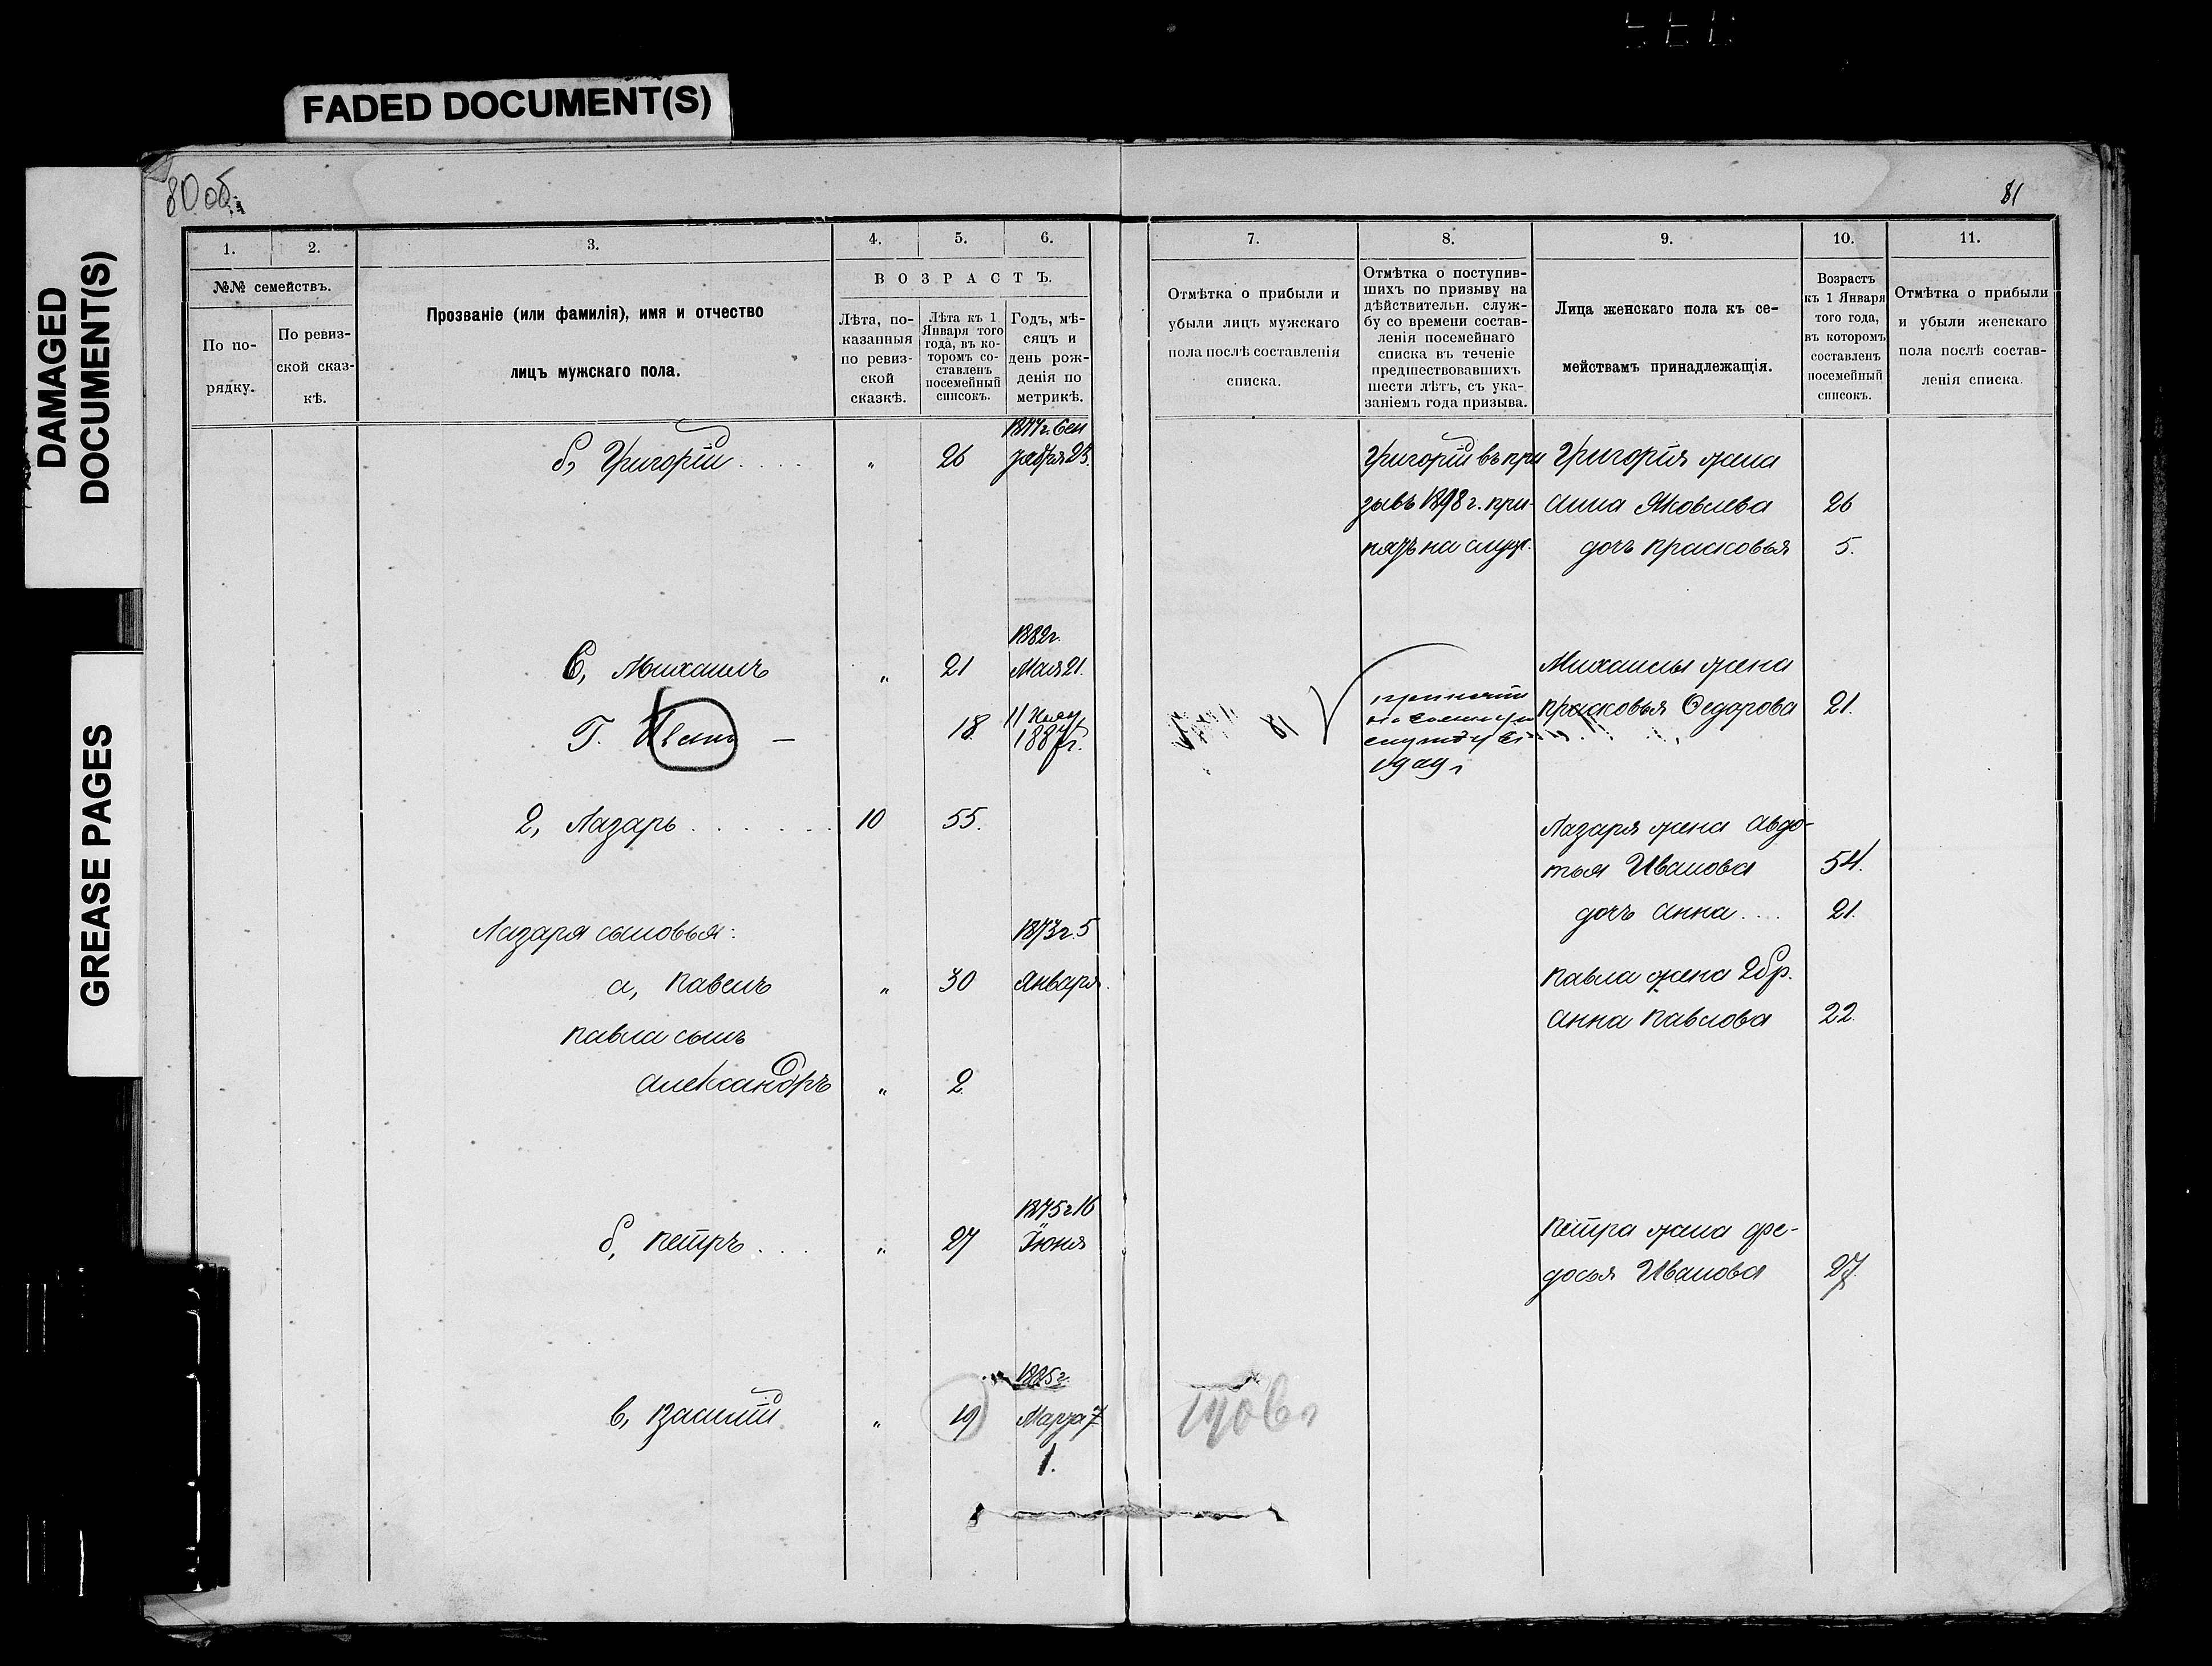 FADED DOCUMENT(S)
DAMAGED
DOCUMENT(S)
GREASE PAGES
80 об.
81
1.
2.
3.
4.
5.
6.
7.
8.
9.
10.
11.
№№ семействъ.
По по-
рядку.
По ревиз-
ской сказ-
кѣ.
Прозваніе (или фамилія), имя и отчество
лицъ мужскаго пола.
ВОЗРАСТЪ.
Лѣта, по-
казанныя
по ревиз-
ской
сказкѣ.
Лѣта къ 1
Января того
года, въ ко-
торомъ со-
ставленъ
посемейный
списокъ.
Годъ, мѣ-
сяцъ и
день рож-
денія по
метрикѣ.
Отмѣтка о прибыли и
убыли лицъ мужскаго
пола послѣ составленія
списка.
Отмѣтка о поступив-
шихъ по призыву на
дѣйствительн. служ-
бу со времени состав-
ленія посемейнаго
списка въ теченіе
предшествовавшихъ
шести лѣтъ, съ ука-
заніемъ года призыва.
Лица женскаго пола къ се-
мействамъ принадлежащія.
Возрастъ
къ 1 Января
того года,
въ которомъ
составленъ
посемейный
списокъ.
Отмѣтка о прибыли
и убыли женскаго
пола послѣ состав-
ленія списка.
1877 г. Сен
б, Григорій . . . . " 26 тября 25. Григорій въ при Григорія жена
зывъ 1898 г. при- Анна Яковлева 26
нятъ на служ. дочь Прасковья 5.
1882 г.
в, Михаилъ " 21 Мая 21. Михаилы жена
Прасковья Федорова 21.
Г. Иванъ — 18 11
188 г.
2, Лазарь . . . . . . . 10 55. Лазаря жена Авдо-
тья Иванова 54.
дочь Анна . . . 21.
Лазаря сыновья: 1873 г. 5
а, Павелъ " 30 Января. Павла жена 2 бр.
Анна Павлова 22.
Павла сынъ
Александръ " 2
1875 г 16
б, Петръ . . . " 27 Іюня Петра жена Фе-
досья Иванова 27.
1885 г.
в, Василій " 19 Марта 7
1.